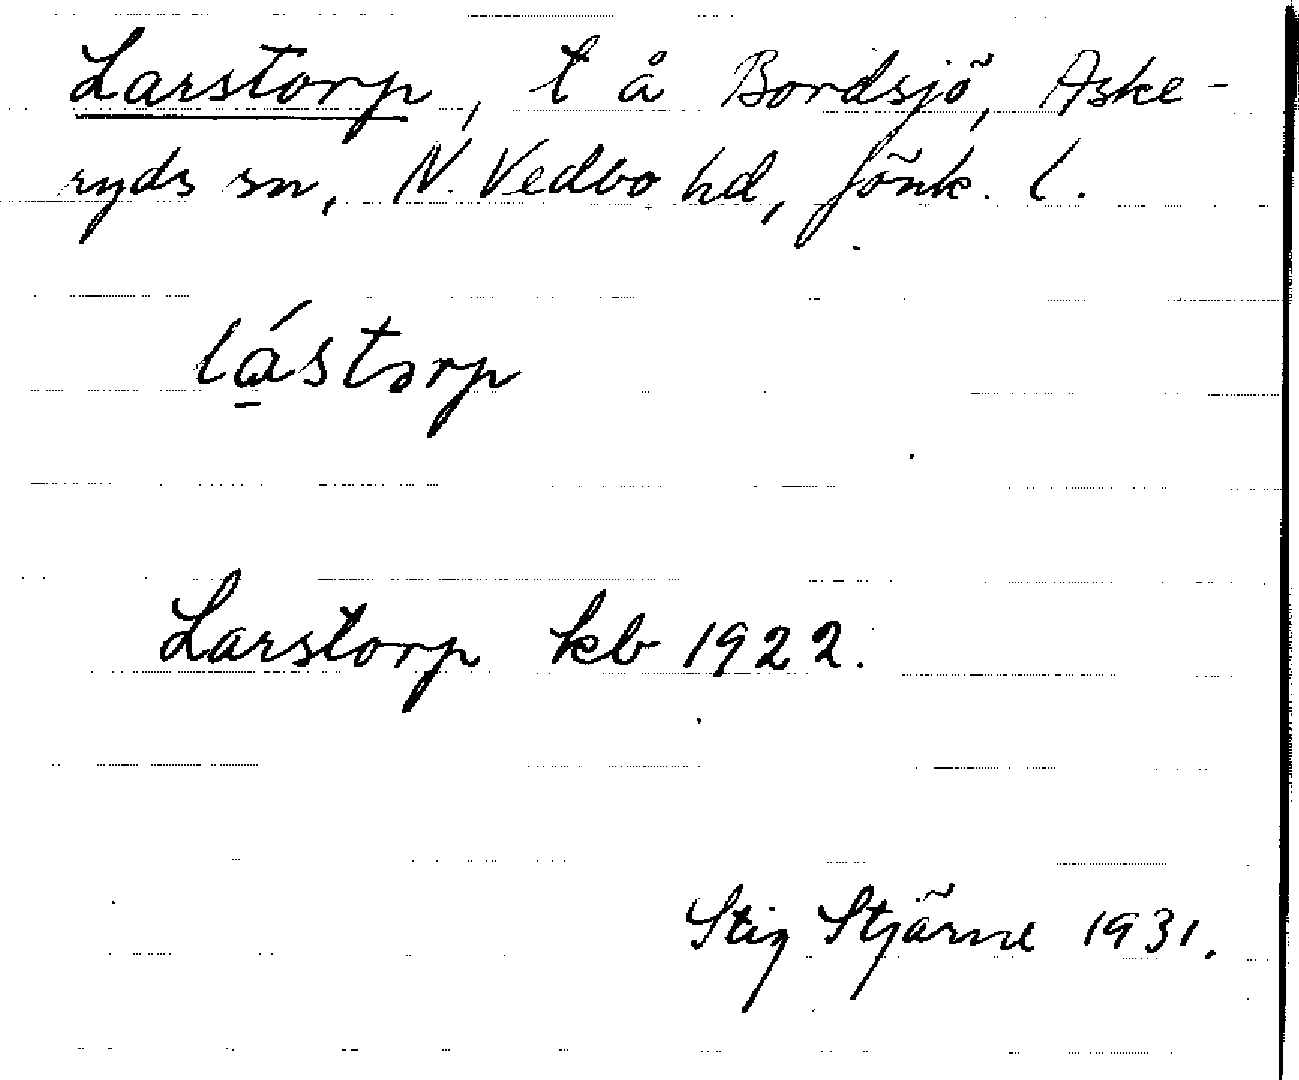 Larstorp, t å Bordsjö, Aske-
ryds sn, N. Vedbo hd, Jönk. l.
lá̱storp
Larstorp kb 1922.
Stig Stjärne 1931.